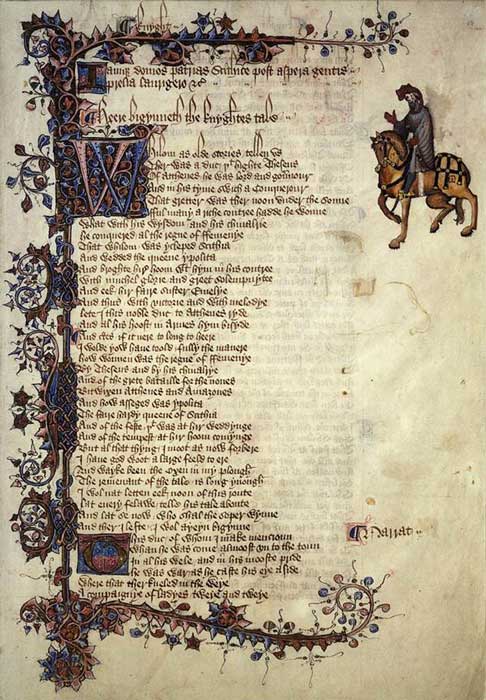 Knyght
Iamque domos patrias Scithice post aspera gentis
prelia laurigero &c
Heere bigynneth the knyghtes tale
Whilom as olde stories tellen vs
Ther was a duc þt highte Theseus
Of Atthenes he was lord and gouernour
And in his tyme swich a Conquerour
That gretter was ther noon vnder the sonne
Fful many a riche contree hadde he wonne
What with his wysdom and his chiualrie
He conquered al the regne of ffemenye
That whilom was ycleped Scithia
And wedded the queene ypolita
And broghte hir hoom wt hym in his contree
With muchel glorie and greet solempnytee
And eek hir faire suster Emelye
And thus with victorie and with melodye
Lete I this noble duc to Atthenes ryde
And al his hoost in Armes hym bisyde
And certes if it nere to long to heere
I wolde yow haue toold fully the manere
How wonnen was the regne of ffemenye
By Theseus and by his chiualrye
And of the grete bataille for the nones
Bitwixen Atthenes and Amazones
And how asseged was ypolita
The faire hardy queene of Scithia
And of the feste þt was at hir weddynge
And of the tempest at hir hoom comynge
But al that thyng I moot as now forbere
I haue god woot a large feeld to ere
And wayke been the oxen in my plough
The remenant of the tale is long ynough
I wol nat letten eek noon of this route
Lat euery felawe telle his tale aboute
And lat se now who shal the soper wynne
And ther I lefte I wol ayeyn bigynne
This duc of whom I make mencioun
Whan he was come almoost vn to the toun
In al his wele and in his mooste pride
He was war as he caste his eye aside
Where that ther kneled in the weye
A compaignye of ladyes tweye and tweye
Narrat